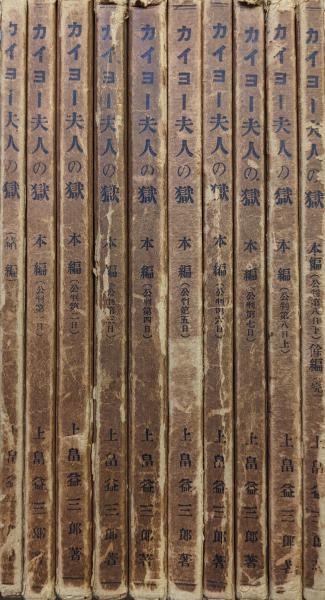 カイヨー夫人の獄 緒編 上畠益三郎著
カイヨー夫人の獄 本編(公判第一日) 上畠益三郎著
カイヨー夫人の獄 本編(公判第二日) 上畠益三郎著
カイヨー夫人の獄 本編(公判第三日) 上畠益三郎著
カイヨー夫人の獄 本編(公判第四日) 上畠益三郎著
カイヨー夫人の獄 本編(公判第五日) 上畠益三郎著
カイヨー夫人の獄 本編(公判第六日) 上畠益三郎著
カイヨー夫人の獄 本編(公判第七日) 上畠益三郎著
カイヨー夫人の獄 本編(公判第八日上) 上畠益三郎著
カイヨー夫人の獄 本編(公判第八日下) 餘編 完 上畠益三郎著